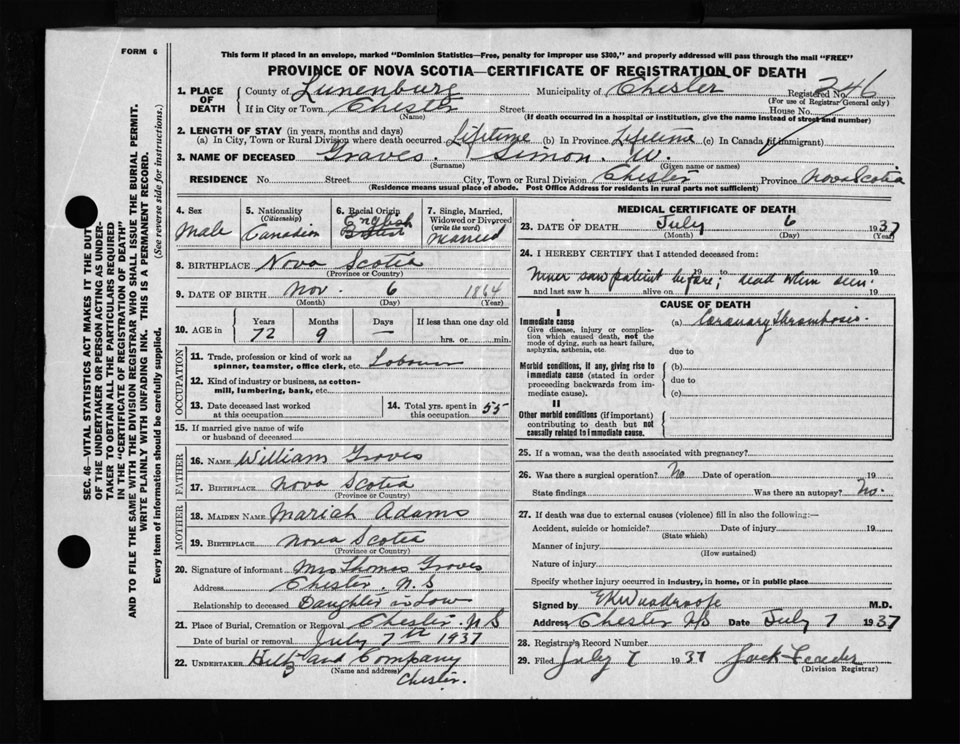 FORM 6
This form if placed in an envelope, marked "Dominion Statistics—Free, penalty for improper use $300," and properly addressed will pass through the mail "FREE"
PROVINCE OF NOVA SCOTIA—CERTIFICATE OF REGISTRATION OF DEATH
1. PLACE OF DEATH County of Lunenburg Municipality of Chester Registered No. 246
(For use of Registrar General only)
If in City or Town Chester Street House No.
(Name) (If death occurred in a hospital or institution, give the name instead of street and number)
2. LENGTH OF STAY (in years, months and days)
(a) In City, Town or Rural Division where death occurred Lifetime (b) In Province Lifetime (c) In Canada (if immigrant)
3. NAME OF DECEASED Graves. Simon. W.
(Surname) (Given name or names)
RESIDENCE No. Street City, Town or Rural Division Chester Province Nova Scotia
(Residence means usual place of abode. Post Office Address for residents in rural parts not sufficient)
4. Sex Male
5. Nationality (Citizenship) Canadian
6. Racial Origin English
7. Single, Married, Widowed or Divorced (write the word) Married
8. BIRTHPLACE Nova Scotia
(Province or Country)
9. DATE OF BIRTH Nov. 6 1864
(Month) (Day) (Year)
10. AGE in Years 72 Months 9 Days — If less than one day old hrs. or min.
OCCUPATION
11. Trade, profession or kind of work as spinner, teamster, office clerk, etc.
12. Kind of industry or business, as cotton-mill, lumbering, bank, etc.
13. Date deceased last worked at this occupation
14. Total yrs. spent in this occupation 55
15. If married give name of wife or husband of deceased
FATHER
16. Name William Graves
17. Birthplace Nova Scotia
(Province or Country)
MOTHER
18. Maiden Name Mariah Adams
19. Birthplace Nova Scotia
(Province or Country)
20. Signature of informant Mrs Thomas Graves
Address Chester. N.S
Relationship to deceased Daughter in Low
21. Place of Burial, Cremation or Removal Chester. N S
Date of burial or removal July 7th 1937
22. UNDERTAKER Hiltz and Company
(Name and address) Chester.
MEDICAL CERTIFICATE OF DEATH
23. DATE OF DEATH July 6 1937
(Month) (Day) (Year)
24. I HEREBY CERTIFY that I attended deceased from:
Never saw patient before; dead when seen. 19 to 19
and last saw h alive on 19
CAUSE OF DEATH
I
Immediate cause
Give disease, injury or complication which caused death, not the mode of dying, such as heart failure, asphyxia, asthenia, etc.
(a) Coronary Thrombosis.
due to
Morbid conditions, if any, giving rise to immediate cause (stated in order proceeding backwards from immediate cause).
(b)
due to
(c)
II
Other morbid conditions (if important) contributing to death but not causally related to immediate cause.
25. If a woman, was the death associated with pregnancy?
26. Was there a surgical operation? No Date of operation 19
State findings Was there an autopsy? No.
27. If death was due to external causes (violence) fill in also the following:—
Accident, suicide or homicide? Date of injury 19
(State which)
Manner of injury
(How sustained)
Nature of injury
Specify whether injury occurred in industry, in home, or in public place
Signed by M.D.
Address Chester NS Date July 7 1937
28. Registrar's Record Number
29. Filed July 7 1937 Jack
(Division Registrar)
SEC. 46—VITAL STATISTICS ACT MAKES IT THE DUTY
OF THE UNDERTAKER OR PERSON ACTING AS UNDER-
TAKER TO OBTAIN ALL THE PARTICULARS REQUIRED
IN THE "CERTIFICATE OF DEATH"
AND TO FILE THE SAME WITH THE DIVISION REGISTRAR WHO SHALL ISSUE THE BURIAL PERMIT.
WRITE PLAINLY WITH UNFADING INK. THIS IS A PERMANENT RECORD.
Every item of information should be carefully supplied. (See reverse side for instructions.)